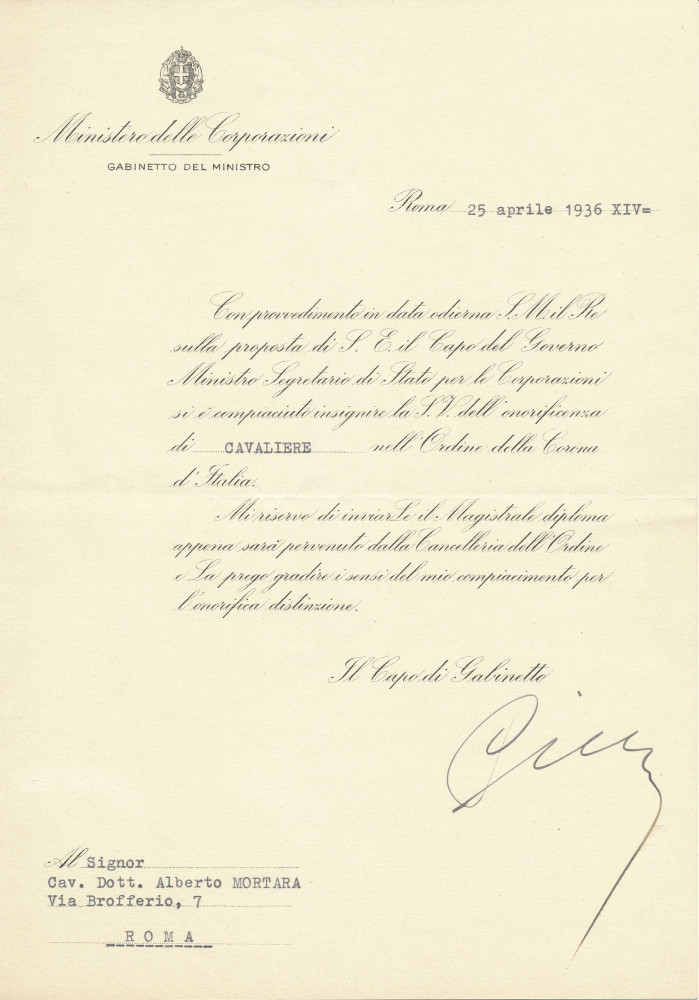 Ministero delle Corporazioni
GABINETTO DEL MINISTRO
Roma 25 aprile 1936 XIV=
Con provvedimento in data odierna S. M. il Re
sulla proposta di S. E. il Capo del Governo
Ministro Segretario di Stato per le Corporazioni
si è compiaciuto insignire la S. V. dell'onorificenza
di CAVALIERE nell'Ordine della Corona
d'Italia.
Mi riservo di inviarLe il Magistrale diploma
appena sarà pervenuto dalla Cancelleria dell'Ordine
e La prego gradire i sensi del mio compiacimento per
l'onorifica distinzione.
Il Capo di Gabinetto
Al Signor
Cav. Dott. Alberto MORTARA
Via Brofferio, 7
R O M A